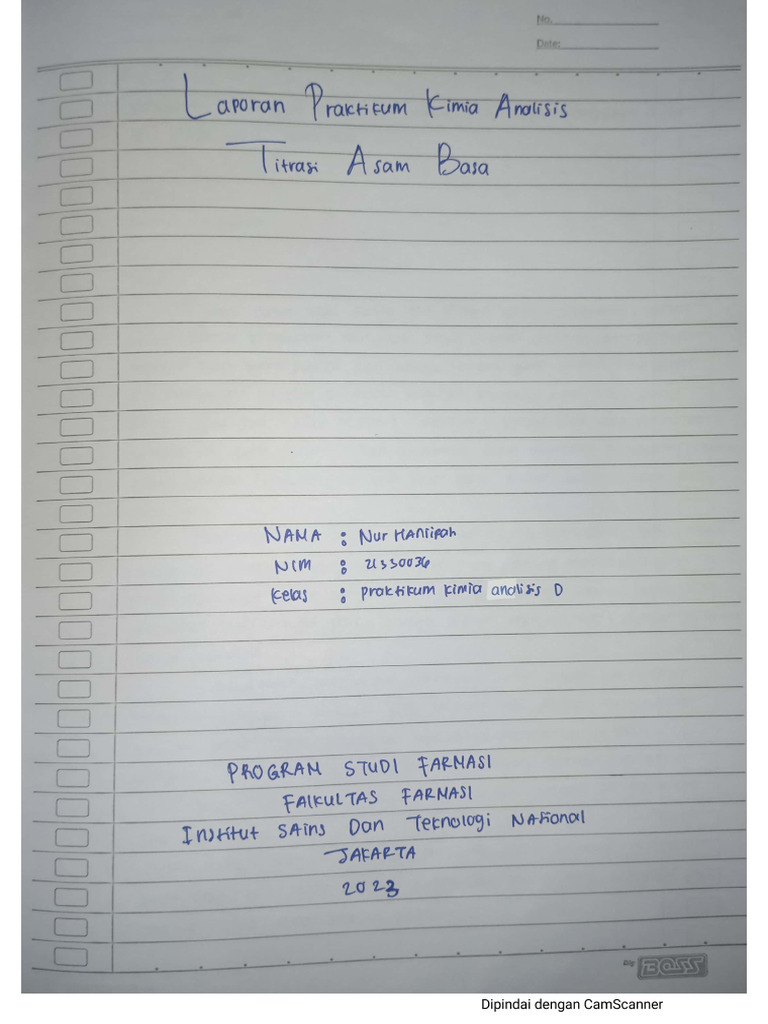 No.
Date:
Laporan Praktikum Kimia Analisis
Titrasi Asam Basa
NAMA : Nur HANIFah
NIM : 21330036
Kelas : praktikum kimia analisis D
PROGRAM STUDI FARMASI
FAlKULTAS FARMASI
Institut SAins Dan Teknologi NASional
JAKARTA
2023
BOSS
Dipindai dengan CamScanner